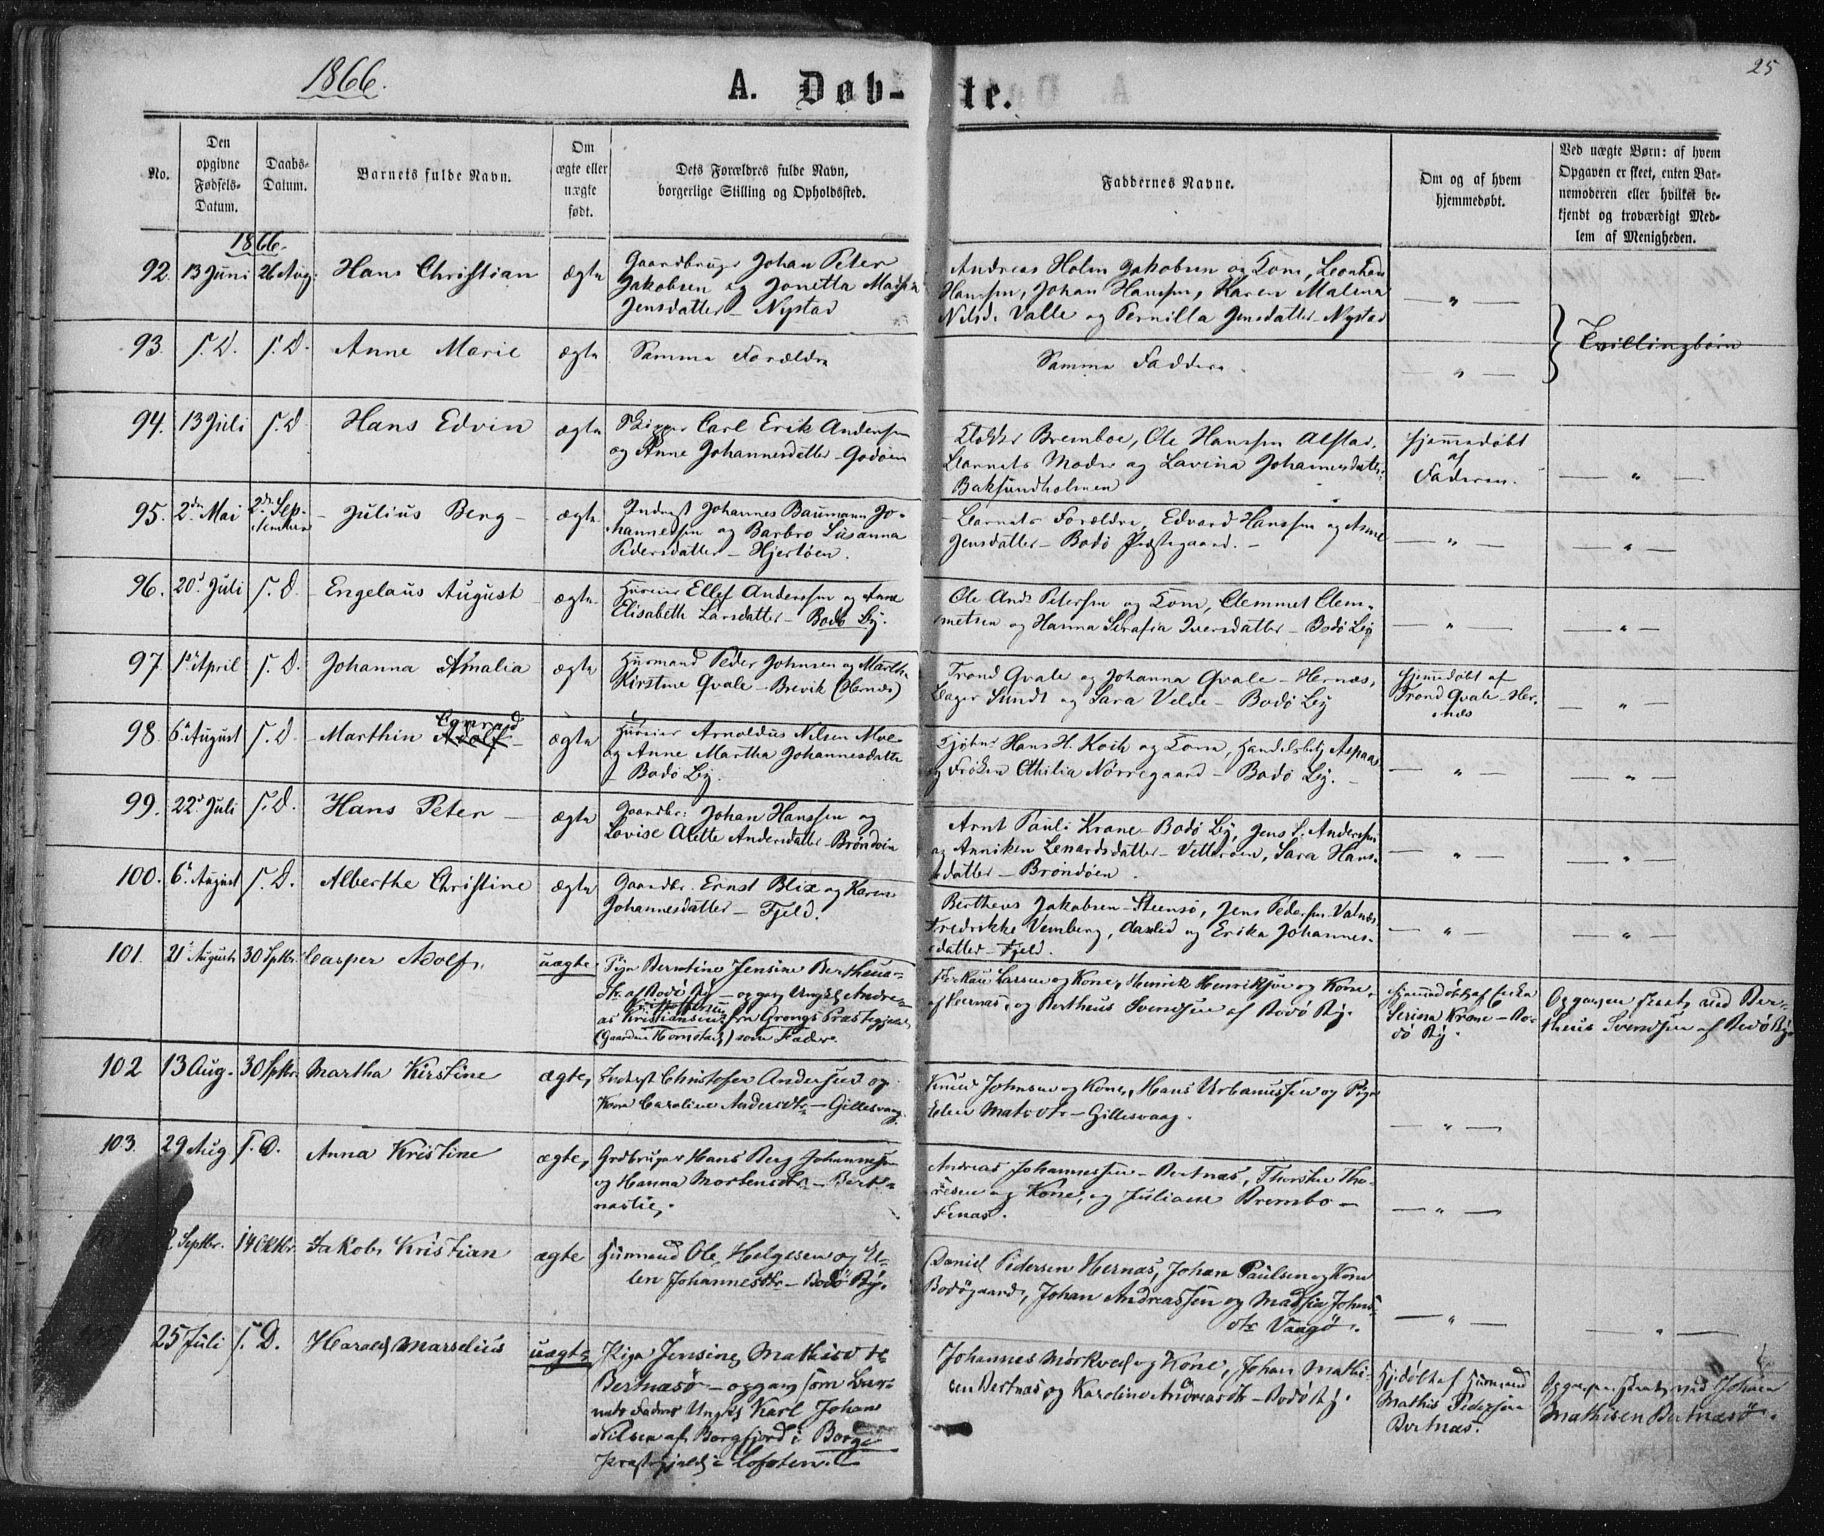 1866.
A. Døb-te.
25
No.
Den opgivne Fødsels-Datum.
Daabs-Datum.
Barnets fulde Navn.
Om ægte eller uægte født.
Dets Forældres fulde Navn, borgerlige Stilling og Opholdssted.
Faddernes Navne.
Om og af hvem hjemmedøbt.
Ved uægte Børn: af hvem Opgaven er skeet, enten Barnemoderen eller hvilket bekjendt og troværdigt Medlem af Menigheden.
1866.
92. 13 Juni 26 Aug: Hans Christian ægte
Gaardbruger Johan Peter
Jakobsen og Jonetta
Jensdatter – Nystad
Andreas Holm Jakobsen og Kone,
Hanssen, Johan Hanssen, Karen Malena
Nilsd. Valle og Pernilla Jensdatter – Nystad
— " —
93. s. D. s. D. Anne Marie ægte
Samme Forældre
Samme Faddere.
— " —
Tvillingbørn
94. 13 Juli s. D Hans Edvin ægte
Skipper Carl Erik Andersen
og Anne Johannesdatter – Godøen
Klokker Bremboe, Ole Hanssen Alstad,
Barnets Moder og Lavina Johannesdatter
Baksundholmen
Hjemmedøbt
af
Faderen.
— " —
95. 2den Mai 2den September – Julius Berg – ægte
Inderst Johannes Baumann Jo-
hannessen og Barbro Susanna
Pedersdatter – Hjertøen.
Barnets Forældre, Edvard Hanssen og Anne
Jensdatter – Bodø Præstegaard. –
— " —
— " —
96. 20de Juli s. D. – Engelaus August ægte
Huseier Ellef Anderssen og
Elisabeth Larsdatter – Bodø By.
Ole Ands Petersen og Kone, Clemmet Clem-
metsen og Hanna Serafia Iversdatter – Bodø By
— " —
— " —
97. 1ste April s. D. Johanna Amalia ægte
Husmand Peder Johnsen og Marth.
Kirstine Qvale – Brevik (Hernæs)
Trond Qvale og Johanna Qvale – Hernæs,
Bager Sundt og Sara Velde – Bodø By
Hjemmedøbt af
Trond Qvale – Her-
næs
— " —
98. 6te August s. D. – Marthin Adolf Conrad ægte
Huseier Arnoldus Nilsen Moe
og Anne Martha Johannesdatter
Bodø By.
Kjøbm. Hans H. Koch og Kone, Handelsbetj. Aspaas
og Frøken Othilia Nørregaard – Bodø By. –
— " —
— " —
99. 22de Juli s. D. Hans Peter – ægte
Gaardbr: Johan Hanssen og
Lovise Alette Andersdatter – Brøndøen
Arnt Pauli Krane – Bodø By, Jens S. Anderssen
og Anniken Lenardsdatter – Vetterøen, Sara Hans-
datter – Brøndøen.
— " —
— " —
100. 6te August s. D. Alberthe Christine ægte
Gaardbr. Ernst Blix og Karen
Johannesdatter – Fjeld.
Bertheus Jakobsen – Steensø, Jens Pedersen Valnes
Fredrikke Vemberg, Aaslid og Erika Johannes-
datter – Fjeld.
— " —
— " —
101. 21de August 30 Sptbr. Casper Adolf, uægte.
Pige Berntine Jensine Bertheus-
dtr. af Bodø By – opgav Ungkl Andre-
as Kristiansen Kristoffersen fra Grongs Præstegjeld,
(Gaarden Homstad) som Fader.
Larsen og Kone, Henrik Henriksen og Kone,
af Svernæs, og Bertheus Svendsen af Bodø By.
Hjemmedøbt af
Serina Krane – Bo-
dø By.
Opgaven skeet ved Ber-
theus Svendsen af Bodø By
102 13 Aug. 30 Sptbr. Martha Kirstine ægte,
Inderst Christofer Andersen og
Kone Caroline Andersdtr – Gillesvaag.
Knud Johnsen og Kone, Hans Urbanussen og Pige
Elen Matsdtr – Gillesvaag.
— " —
103. 29 Aug s. D. Anna Kristine ægte,
Grdbruger Hans Berg Johannessen
og Hanna Mortensdtr. – Bert-
næslie.
Andreas Johannessen – Bertnæs, Thorsten Tho-
resen og Kone, og Juliane Brembo –
— " —
Septbr. 14 Oktbr. Jakob Kristian ægte
Husmand Ole Helgesen og El-
len Johannesdtr – Bodø By.
Daniel Pedersen Hernæs, Johan Paulsen og Kone
Bodøgaard, Johan Andreassen og Madsia Johns-
dtr Vaagø.
— " —
— " —
25 Juli s. D. Harald Marselius uægte
Pige Jensine Mathisd. de
Bertnæsø – opgav som Bar-
nets Fader Ungkl Karl Johan
Nilsen af Borgfjord i Borge
Præstegjeld i Lofoten.
Johannes Mørkved og Kone, Johan Mathi-
sen Bertnæs og Karoline Andreasdtr – Bodø By.
Hjdøbt af Husmand
Mathis Pedersen
Bertnæs.
Opgaven skeet ved Johan
Mathisen Bertnæsø.